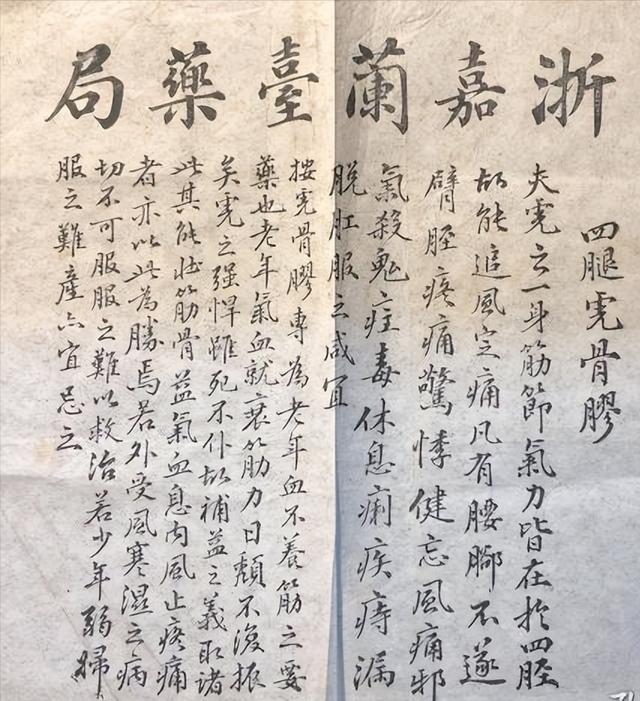 浙嘉蘭臺藥局
四腿虎骨膠
夫虎之一身筋節氣力皆在於四脛
故能追風定痛凡有腰腳不遂
臂脛疼痛驚悸健忘風痛邪
氣殺鬼疰毒休息痢疾痔漏
脫肛服之咸宜
按虎骨膠專為老年血不養筋之要
藥也老年氣血就衰筋力日頹不復振
矣虎之强悍雖死不仆故補益之義取諸
此其能壯筋骨益氣血息內風止疼痛
者亦以此為勝焉若外受風寒濕之病
切不可服服之難以救治若少年弱婦
服之難產亦宜忌之